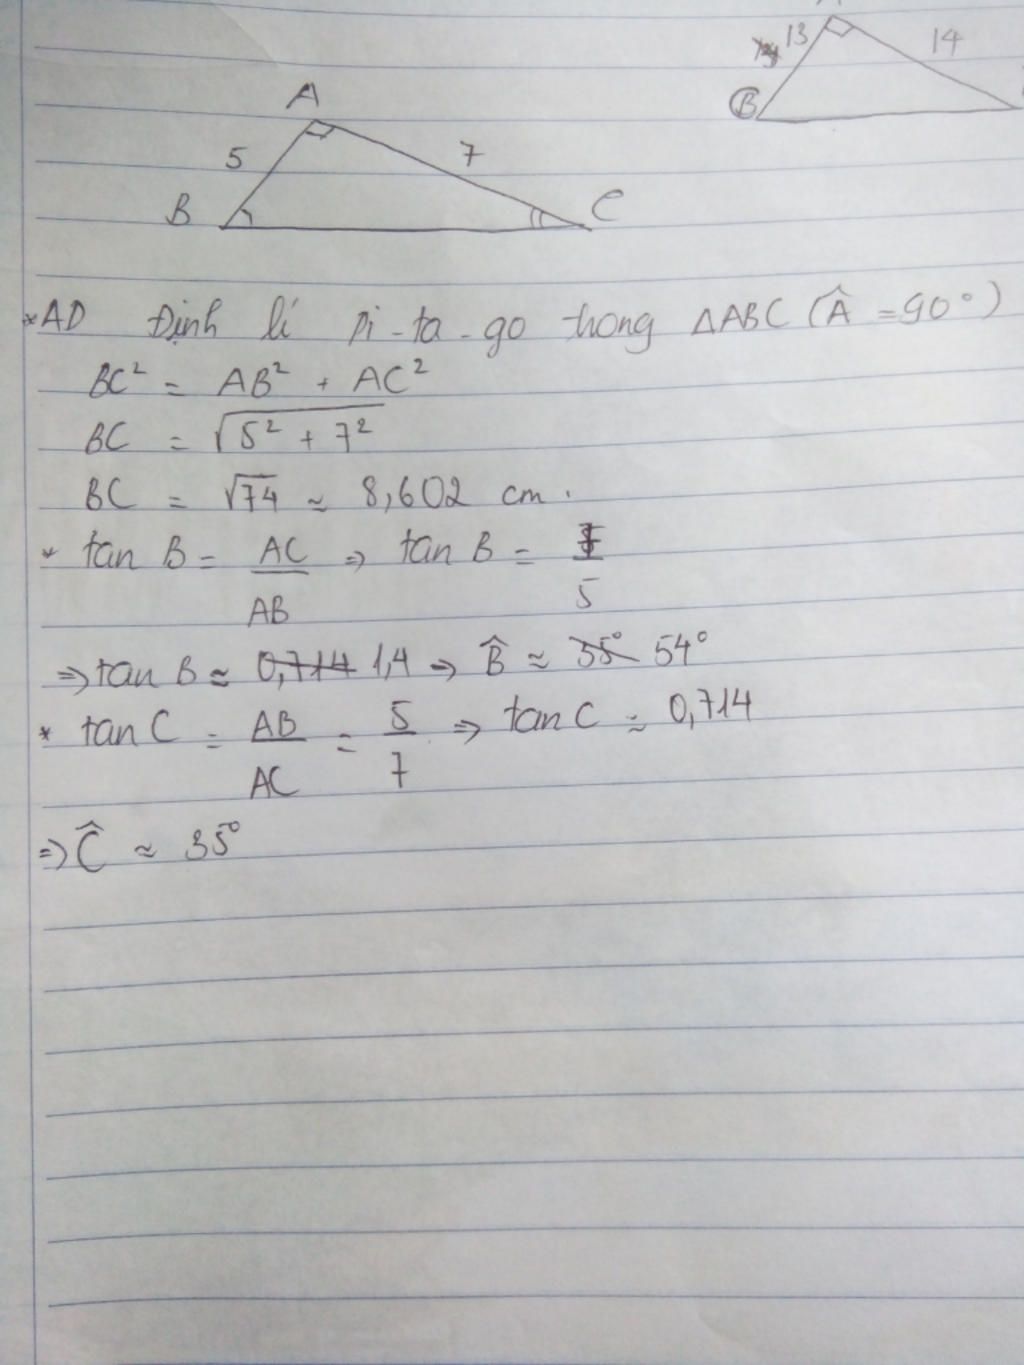 13
14
B
A
5
7
B
C
*AD Định lí Pi-ta-go trong ΔABC (Â = 90°)
BC² = AB² + AC²
BC = √5² + 7²
BC = √74 ≈ 8,602 cm.
* tan B = AC/AB ⇒ tan B = 7/5
⇒ tan B ≈ 0,714 1,4 ⇒ B̂ ≈ 35° 54°
* tan C = AB/AC = 5/7 ⇒ tan C ≈ 0,714
⇒ Ĉ ≈ 35°